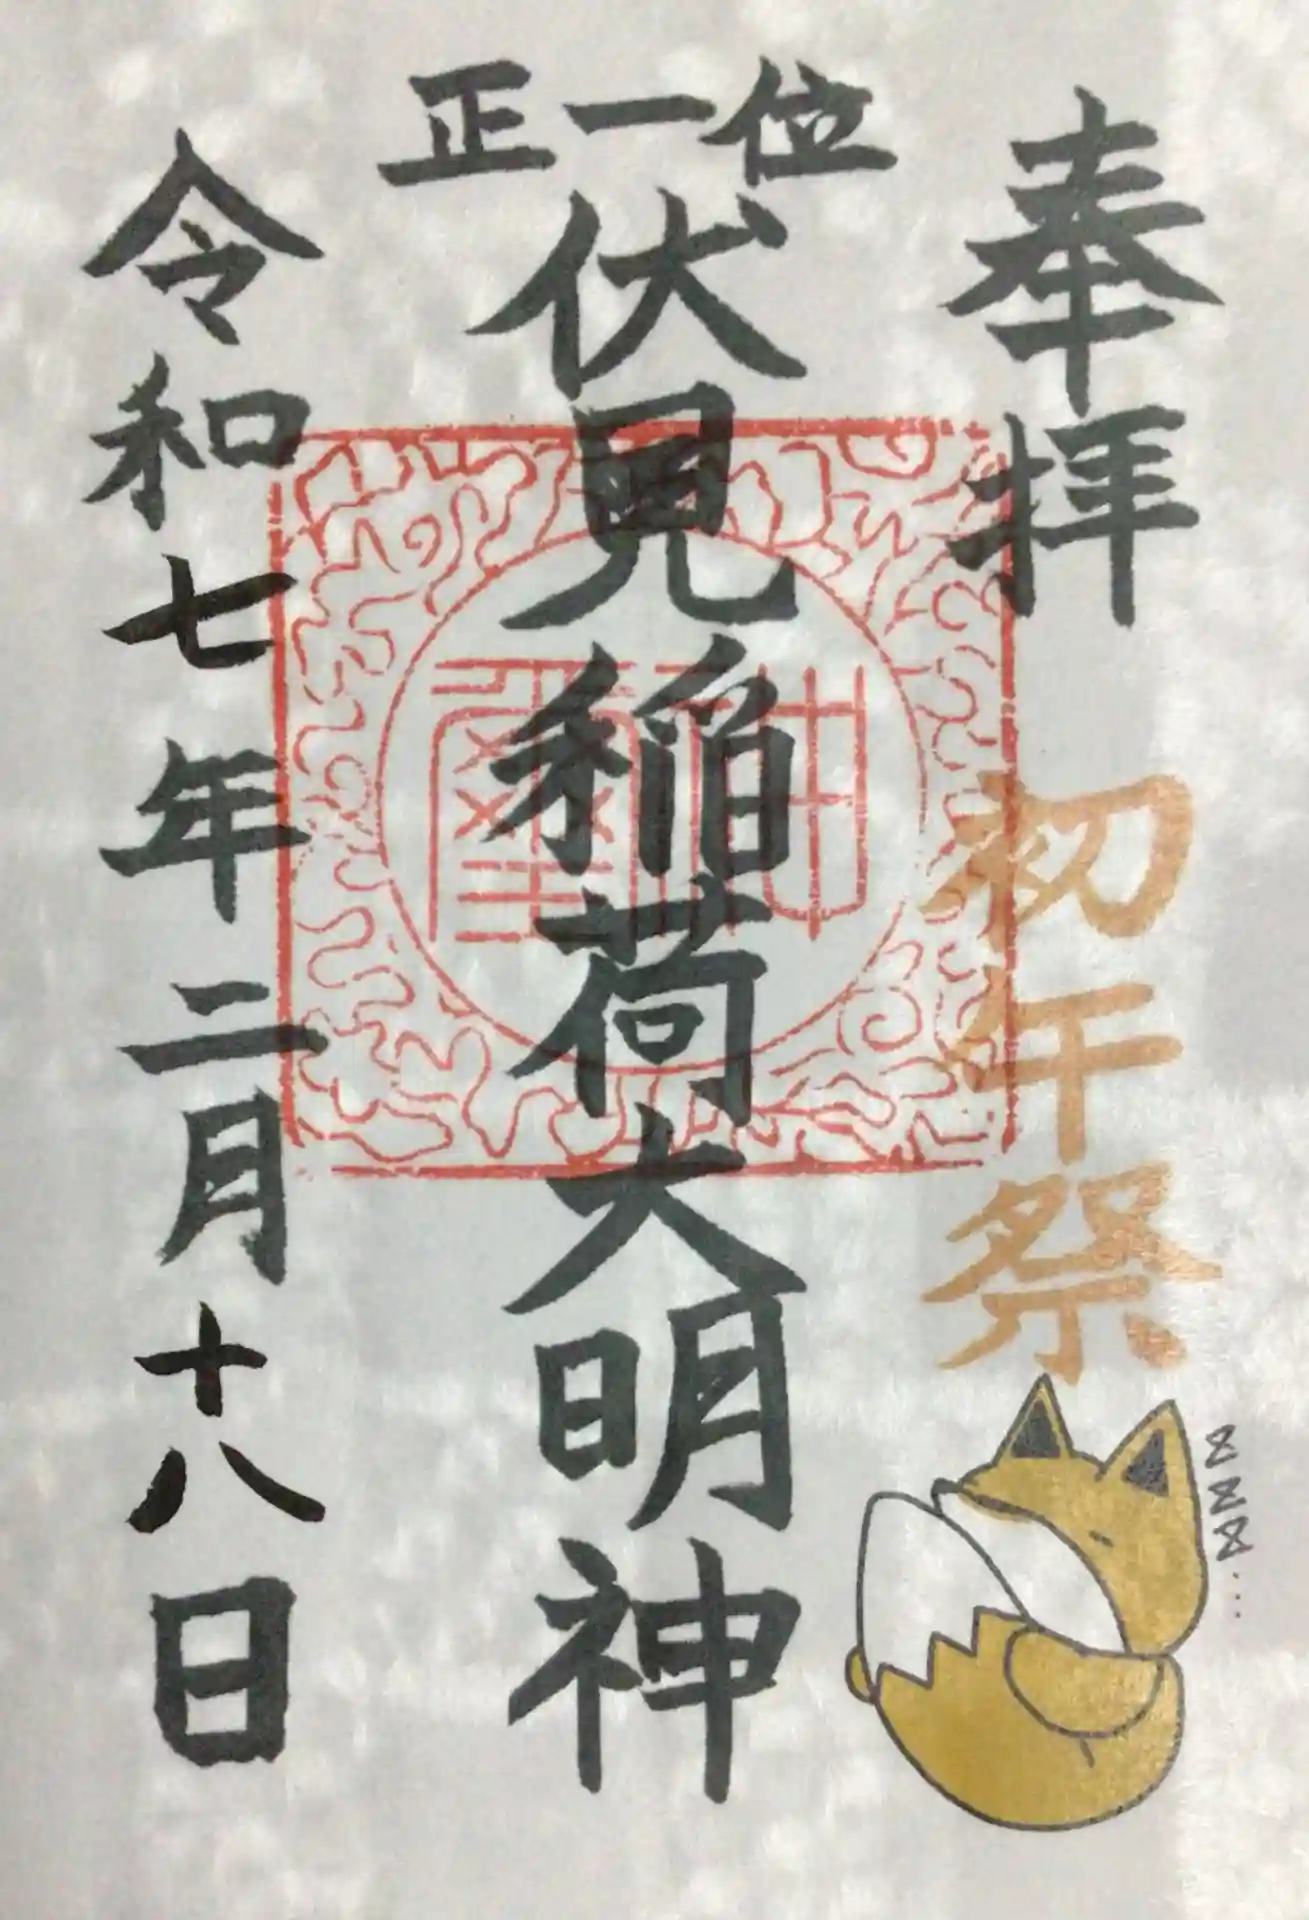 奉拝
初午祭
zzz...
正一位
伏見稲荷大明神
神璽
令和七年二月十八日